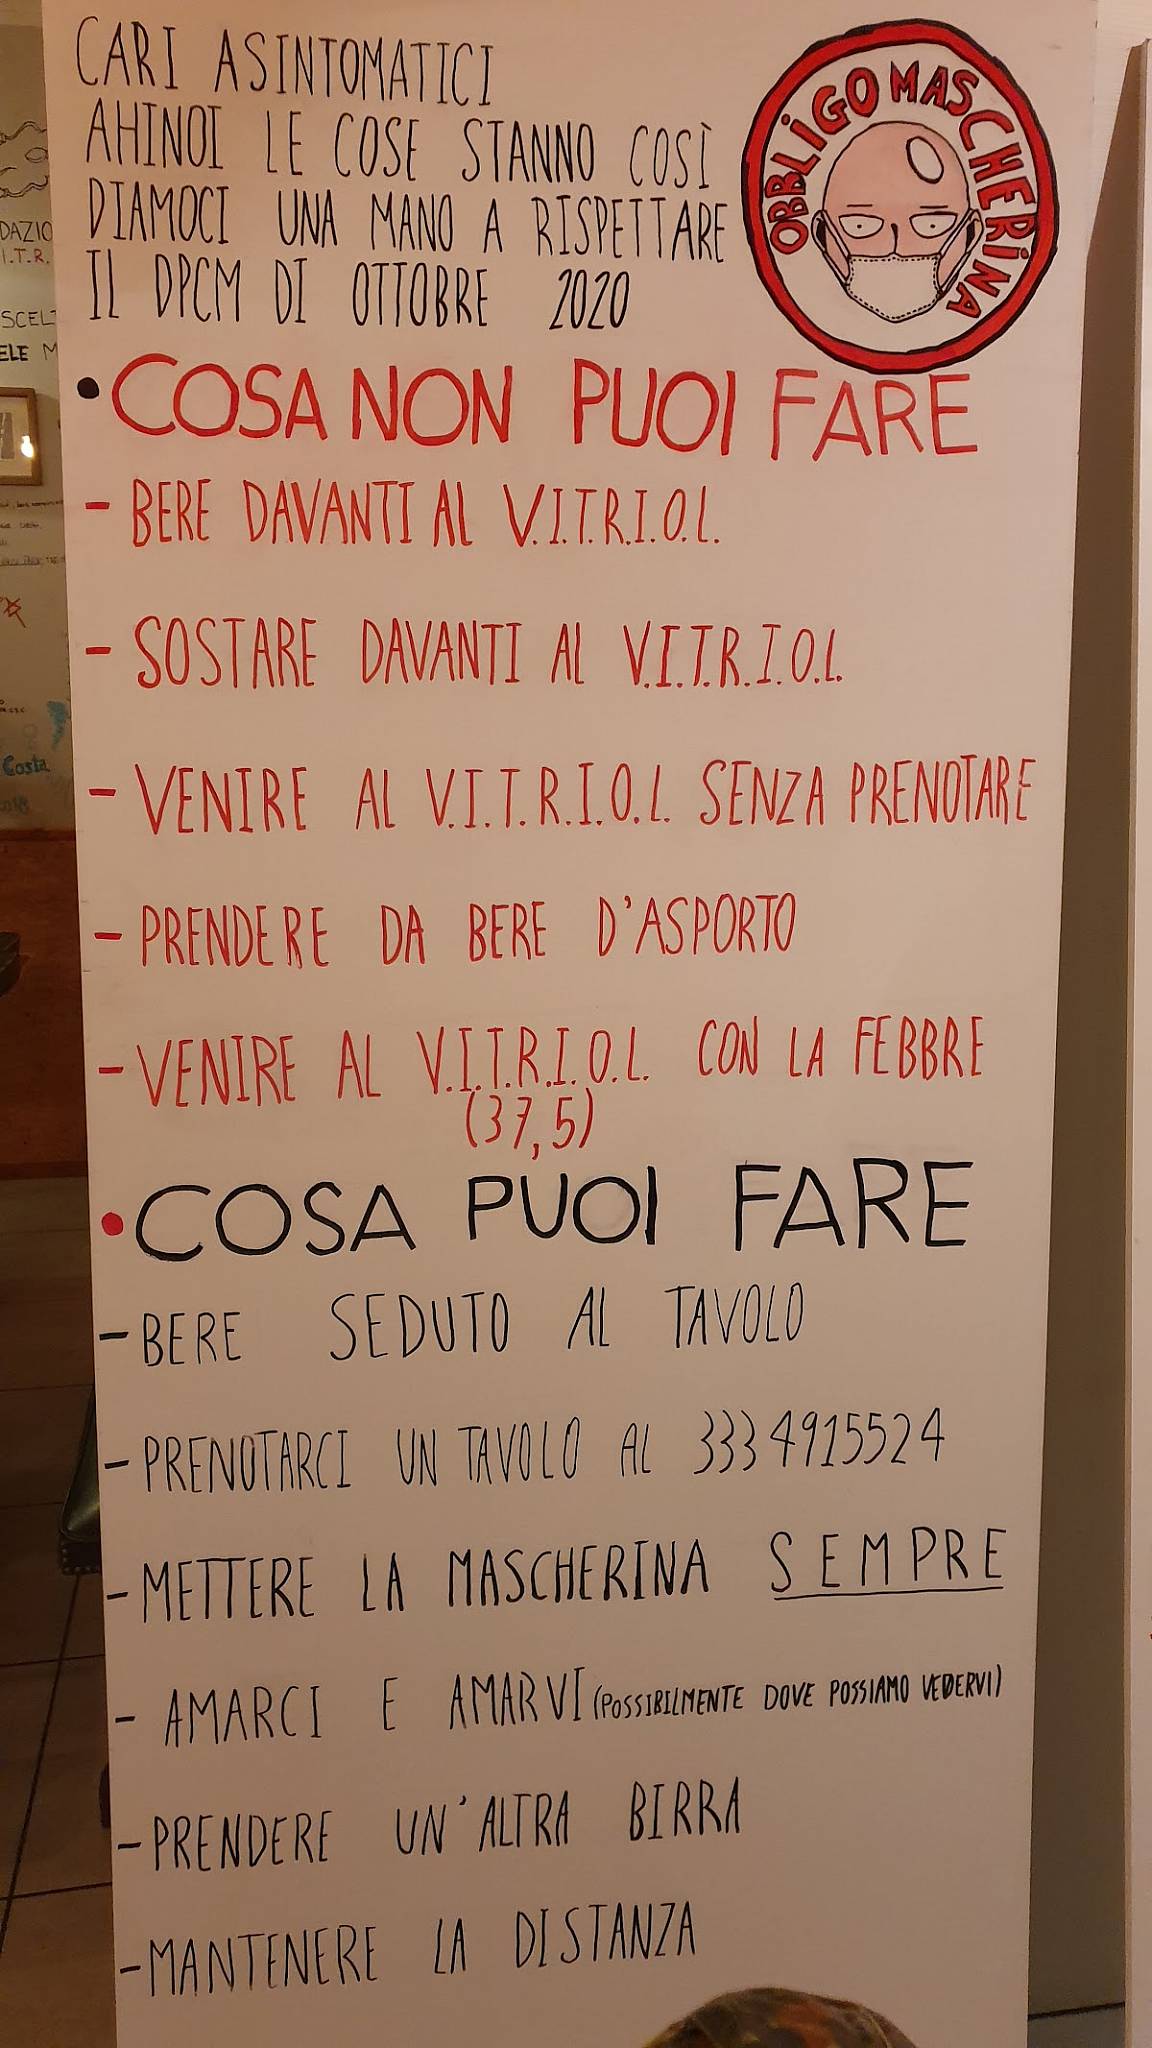 CARI ASINTOMATICI
AHINOI LE COSE STANNO COSÌ
DIAMOCI UNA MANO A RISPETTARE
IL DPCM DI OTTOBRE 2020
OBBLIGO MASCHERINA
• COSA NON PUOI FARE
- BERE DAVANTI AL V.I.T.R.I.O.L.
- SOSTARE DAVANTI AL V.I.T.R.I.O.L.
- VENIRE AL V.I.T.R.I.O.L. SENZA PRENOTARE
- PRENDERE DA BERE D'ASPORTO
- VENIRE AL V.I.T.R.I.O.L. CON LA FEBBRE
(37,5)
• COSA PUOI FARE
- BERE SEDUTO AL TAVOLO
- PRENOTARCI UN TAVOLO AL 3334915524
- METTERE LA MASCHERINA SEMPRE
- AMARCI E AMARVI (POSSIBILMENTE DOVE POSSIAMO VEDERVI)
- PRENDERE UN'ALTRA BIRRA
- MANTENERE LA DISTANZA
DAZIO
I.T.R.
SCEL
ELE M
Costa